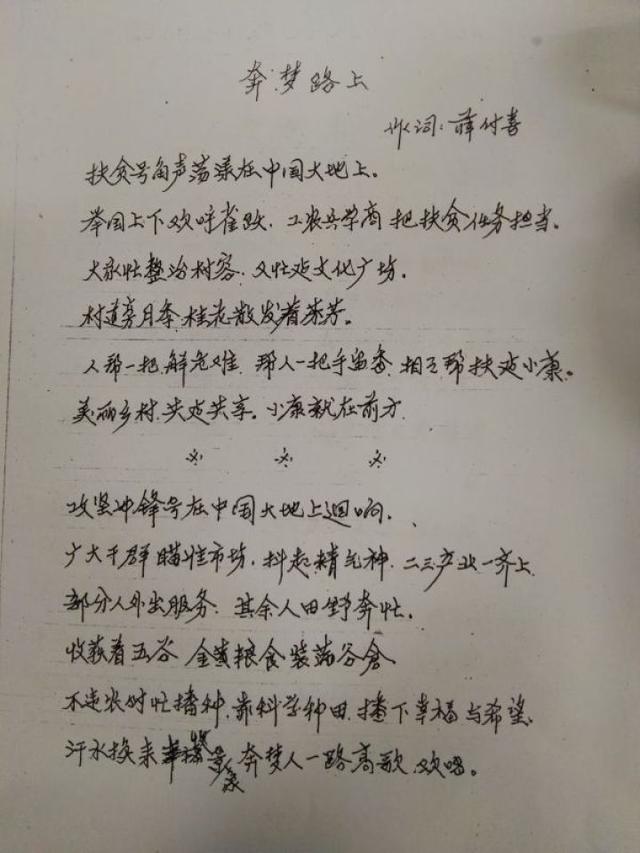 奔梦路上
作词：薛付喜
扶贫号角声荡漾在中国大地上。
举国上下欢呼雀跃，工农兵学商把扶贫任务担当。
大家忙整治村容，又忙建文化广场。
村道旁月季桂花散发着芬芳。
人帮一把解危难，帮人一把手留香，相互帮扶建小康。
美丽乡村共建共享。小康就在前方
攻坚冲锋号在中国大地上迴响，
广大干群瞄准市场，抖起精气神，二三产业一齐上
部分人外出服务，其余人田野奔忙。
收获着五谷 金黄粮食装满谷仓
不违农时忙播种，靠科学种田，播下幸福与希望，
汗水换来 奔梦人一路高歌欢唱。